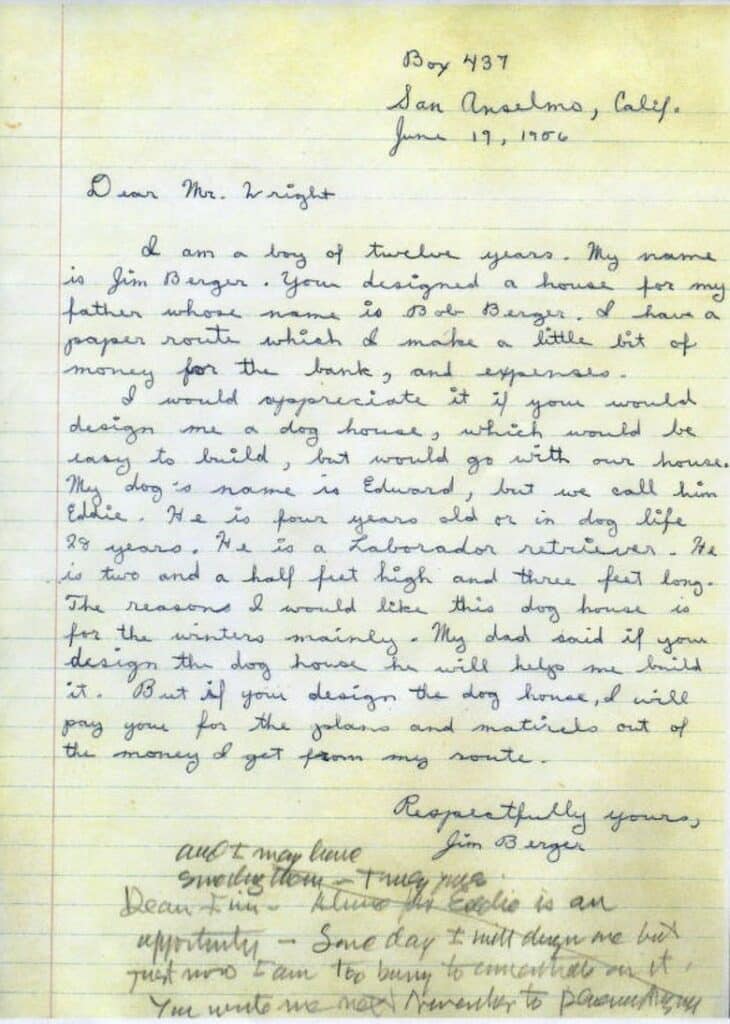 Box 437
San Anselmo, Calif.
June 19, 1956
Dear Mr. Wright
I am a boy of twelve years. My name
is Jim Berger. You designed a house for my
father whose name is Bob Berger. I have a
paper route which I make a little bit of
money for the bank, and expenses.
I would appreciate it if you would
design me a dog house, which would be
easy to build, but would go with our house.
My dog's name is Edward, but we call him
Eddie. He is four years old or in dog life
28 years. He is a Laborador retriever. He
is two and a half feet high and three feet long.
The reasons I would like this dog house is
for the winters mainly. My dad said if you
design the dog house he will helps me build
it. But if you design the dog house, I will
pay you for the plans and matirels out of
the money I get from my route.
Respectfully yours,
Jim Berger
and I may have
something then — Truly yours
Dear Jim - House for Eddie is an
opportunity — Some day I will design one but
just now I am too busy to concentrate on it.
You write me next November to Phoenix